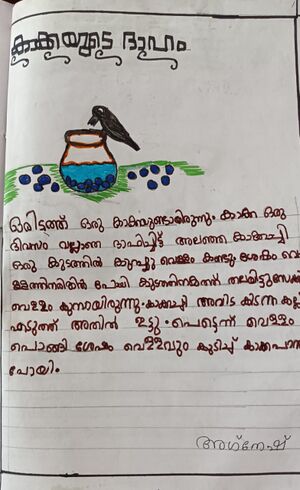 കാക്കയുടെ ദാഹം
ഒരിടത്ത് ഒരു കാക്കയുണ്ടായിരുന്നും കാക്ക ഒരു
ദിവസം വല്ലാണെ ദാഹിച്ചിട്ട് അലഞ്ഞ കാക്കച്ചി
ഒരു കുടത്തിൽ കുറച്ചു വെള്ളം കണ്ടും ശേഷം
പോയി കുടത്തിനകത്ത് തലയിട്ടു
വെള്ളം കുറവായിരുന്നു കാക്കച്ചി അവിട കിടന്ന
എടുത്ത് അതിൽ ഇട്ടു പെട്ടെന്ന് വെള്ളം
പൊങ്ങി ശേഷം വെള്ളവും കുടിച്ച്
പോയിം
അഗ്നേഷ്